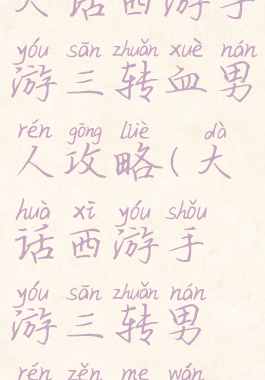 人话西游手
yóu sān zhuǎn xuè nán
游三转血男
rén gōng lüè dà
人攻略(大
huà xī yóu shǒu
话西游手
yóu sān zhuǎn nán
游三转男
rén zěn me wán